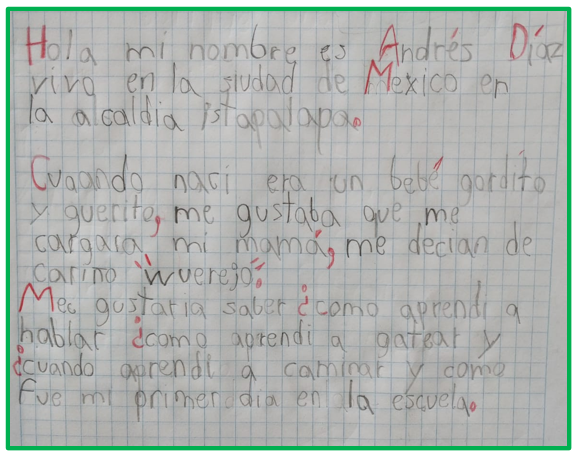 Hola mi nombre es Andrés Díaz
vivo en la siudad de Mexico en
la acaldia istapalapa.
Cuaando naci era un bebé gordito
y guerito, me gustaba que me
cargara mi mamá, me decian de
carino "wuerejo".
Mee gustaria saber ¿como aprendi a
hablar ¿como aprendi a gatear y
¿cuando aprendi a caminar y como
fue mi primer dia en la escuela.